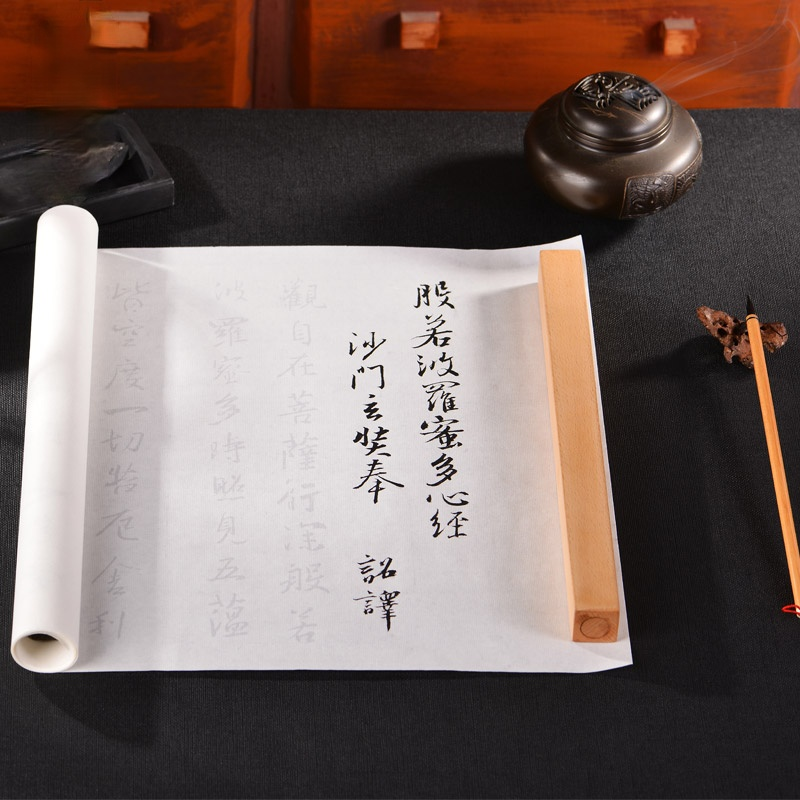 般若波羅蜜多心經
沙門玄奘奉 詔譯
觀自在菩薩行深般若
波羅蜜多時照見五蘊
皆空度一切苦厄舍利